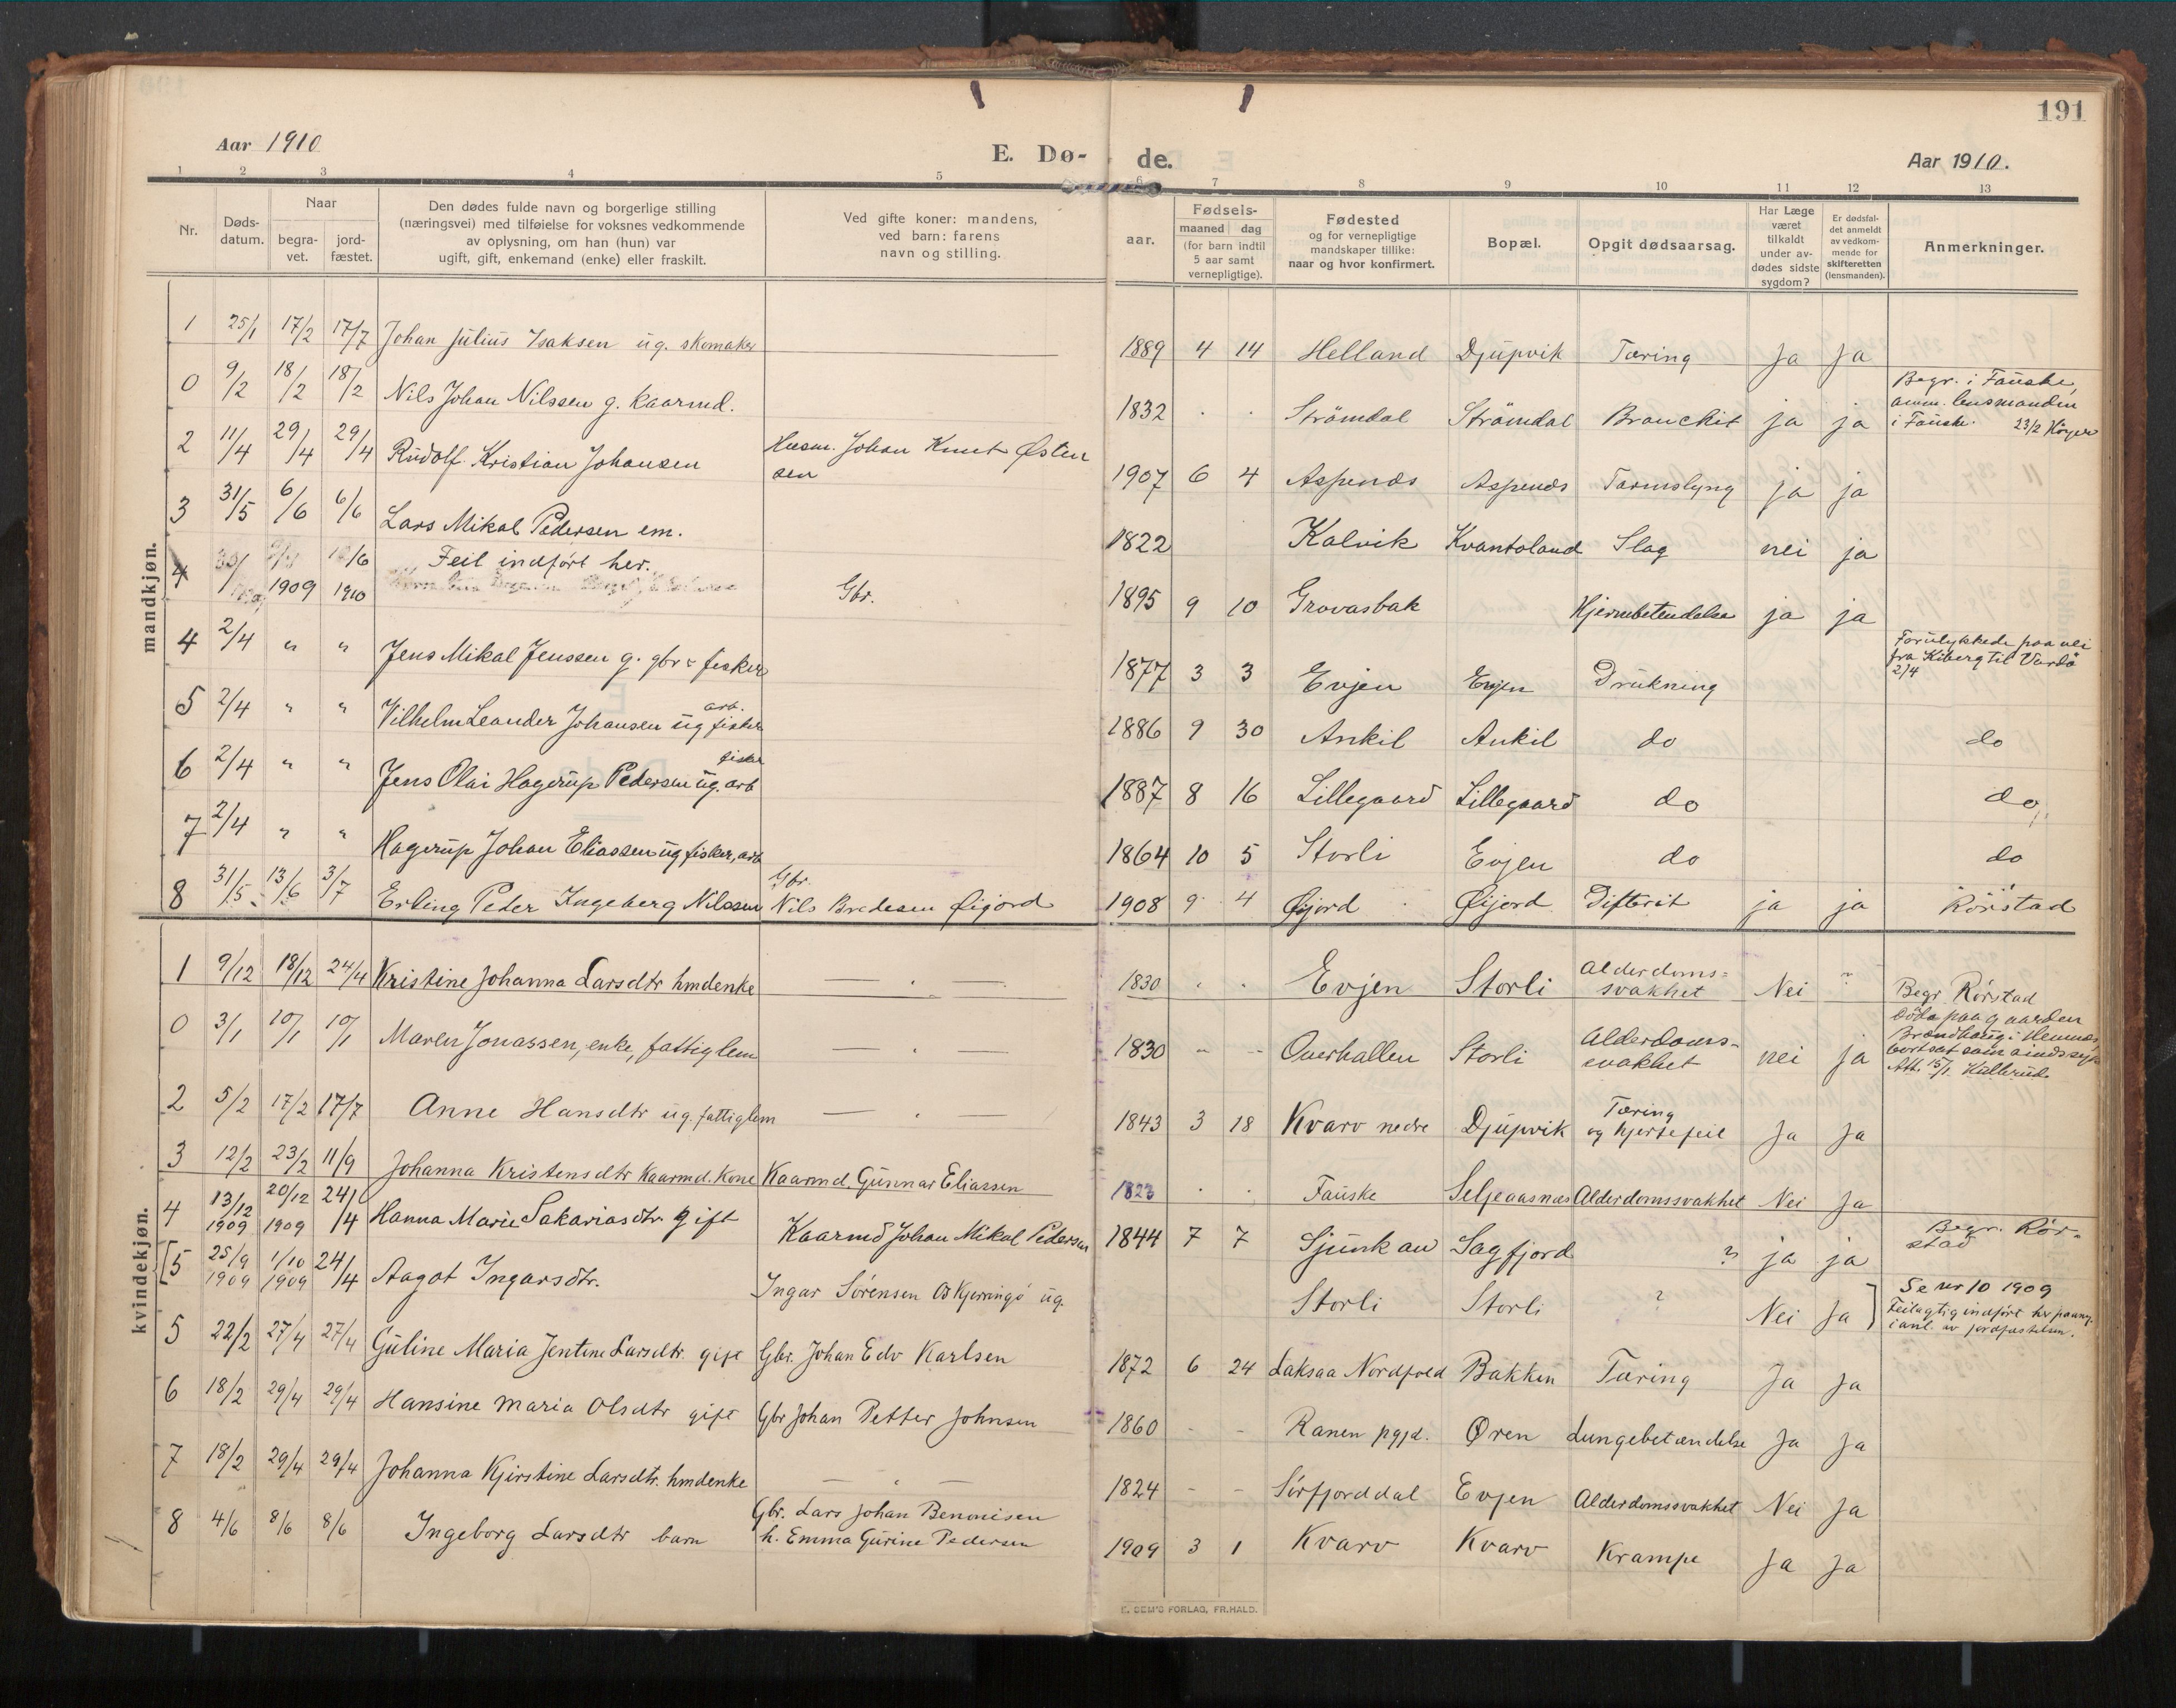 191
Aar 1910
E. Dø- de.
Aar 1910.
1 2 3 4 5 6 7 8 9 10 11 12 13
Nr.
Døds-
datum.
Naar
begra-
vet.
jord-
fæstet.
Den dødes fulde navn og borgerlige stilling
(næringsvei) med tilføielse for voksnes vedkommende
av oplysning, om han (hun) var
ugift, gift, enkemand (enke) eller fraskilt.
Ved gifte koner: mandens,
ved barn: farens
navn og stilling.
Fødsels-
aar.
maaned dag
(for barn indtil
5 aar samt
vernepligtige).
Fødested
og for vernepligtige
mandskaper tillike:
naar og hvor konfirmert.
Bopæl.
Opgit dødsaarsag.
Har Læge
været
tilkaldt
under av-
dødes sidste
sygdom?
Er dødsfal-
det anmeldt
av vedkom-
mende for
skifteretten
(lensmanden).
Anmerkninger.
mandkjøn.
1 25/1 17/2 17/7 Johan Julius Isaksen ug. skomaker — 1889 4 14 Helland Djupvik Tæring Ja Ja
0 9/2 18/2 18/2 Nils Johan Nilssen g. kaarmd. 1832 " " Strömdal Strömdal Bronchit ja ja
Begr. i Fauske,
anm. lensmanden
i Fauske. 23/2
2 11/4 29/4 29/4 Rudolf Kristian Johansen Husm. Johan Knut Østen
sen 1907 6 4 Aspenes Aspenes Tarmslyng ja ja
3 31/5 6/6 6/6 Lars Mikal Pedersen em. 1822 Kalvik Kvantoland Slag nei ja
4 Feil indført her.
1909 1910 Gbr. 1895 9 10 Grovasbak Hjernebetendelse ja ja
4 2/4 " " Jens Mikal Jenssen g. gbr & fisker 1877 3 3 Evjen Evjen Drukning
Forulykkede paa vei
fra Kiberg til Vardö
2/4
5 2/4 " " Vilhelm Leander Johansen ug fisker arb. 1886 9 30 Ankil Ankil do do
6 2/4 " " Jens Olai Hagerup Pedersen ug. arb fisker 1887 8 16 Lillegaard Lillegaard do do
7 2/4 " " Hagerup Johan Eliassen ug fisker, arb 1864 10 5 Storli Evjen do do
8 31/5 13/6 3/7 Erling Peder Ingeberg Nilssen Gbr.
Nils Bredesen Øijord 1908 9 4 Øijord Øijord Difterit ja ja Rörstad
kvindekjøn.
1 9/12 18/12 24/4 Kristine Johanna Larsdtr hmdenke — " — 1830 " " Evjen Storli Alderdoms=
svakhet Nei " Begr. Rörstad
0 3/1 10/1 10/1 Maren Jonassen, enke, fattiglem — " — 1830 - - Overhallen Storli Alderdoms-
svakhet nei ja
Döde paa gaarden
Brandhaug i Hemnes
bortsat som sindssyk
Att. 15/1 Kullerud.
2 5/2 17/2 17/7 Anne Hansdtr ug. fattiglem — " — 1843 3 18 Kvarv nedre Djupvik Tæring
og hjertefeil Ja Ja
3 12/2 23/2 11/9 Johanna Kristensdtr Kaarmd. Kone Kaarmd. Gunnar Eliassen 1823 " " Fauske Seljeaasnes Alderdomssvakhet Nei Ja
4 13/12 1909 20/12 1909 24/4 Hanna Marie Sakariasdtr. gift Kaarmd Johan Mikal Pedersen 1844 7 7 Sjunkan Sagfjord ? ja ja Begr. Rör-
stad
[5 25/9 1909 1/10 1909 24/4 Aagot Ingarsdtr. Ingar Sörensen Os Kjerringö ug. Storli Storli ? Nei Ja ]
Se nr 10 1909
Feilagtig indfört her paany
i anl. av jordfæstelsen.
5 22/2 27/4 27/4 Guline Maria Jentine Larsdtr. gift Gbr. Johan Edv Karlsen 1872 6 24 Laksaa Nordfold Bakken Tæring Ja Ja
6 18/2 29/4 29/4 Hansine Maria Olsdtr gift Gbr Johan Petter Johnsen 1860 - - Ranen pgjd. Øren Lungebetændelse Ja Ja
7 18/2 29/4 29/4 Johanna Kjirstine Larsdtr. hmdenke — " — 1824 - - Sörfjorddal Evjen Alderdomssvakhet Nei Ja
8 4/6 8/6 8/6 Ingeborg Larsdtr barn Gbr. Lars Johan Benonisen
h. Emma Gurine Pedersen 1909 3 1 Kvarv Kvarv Krampe Ja Ja
E. SEM'S FORLAG, FR.HALD.